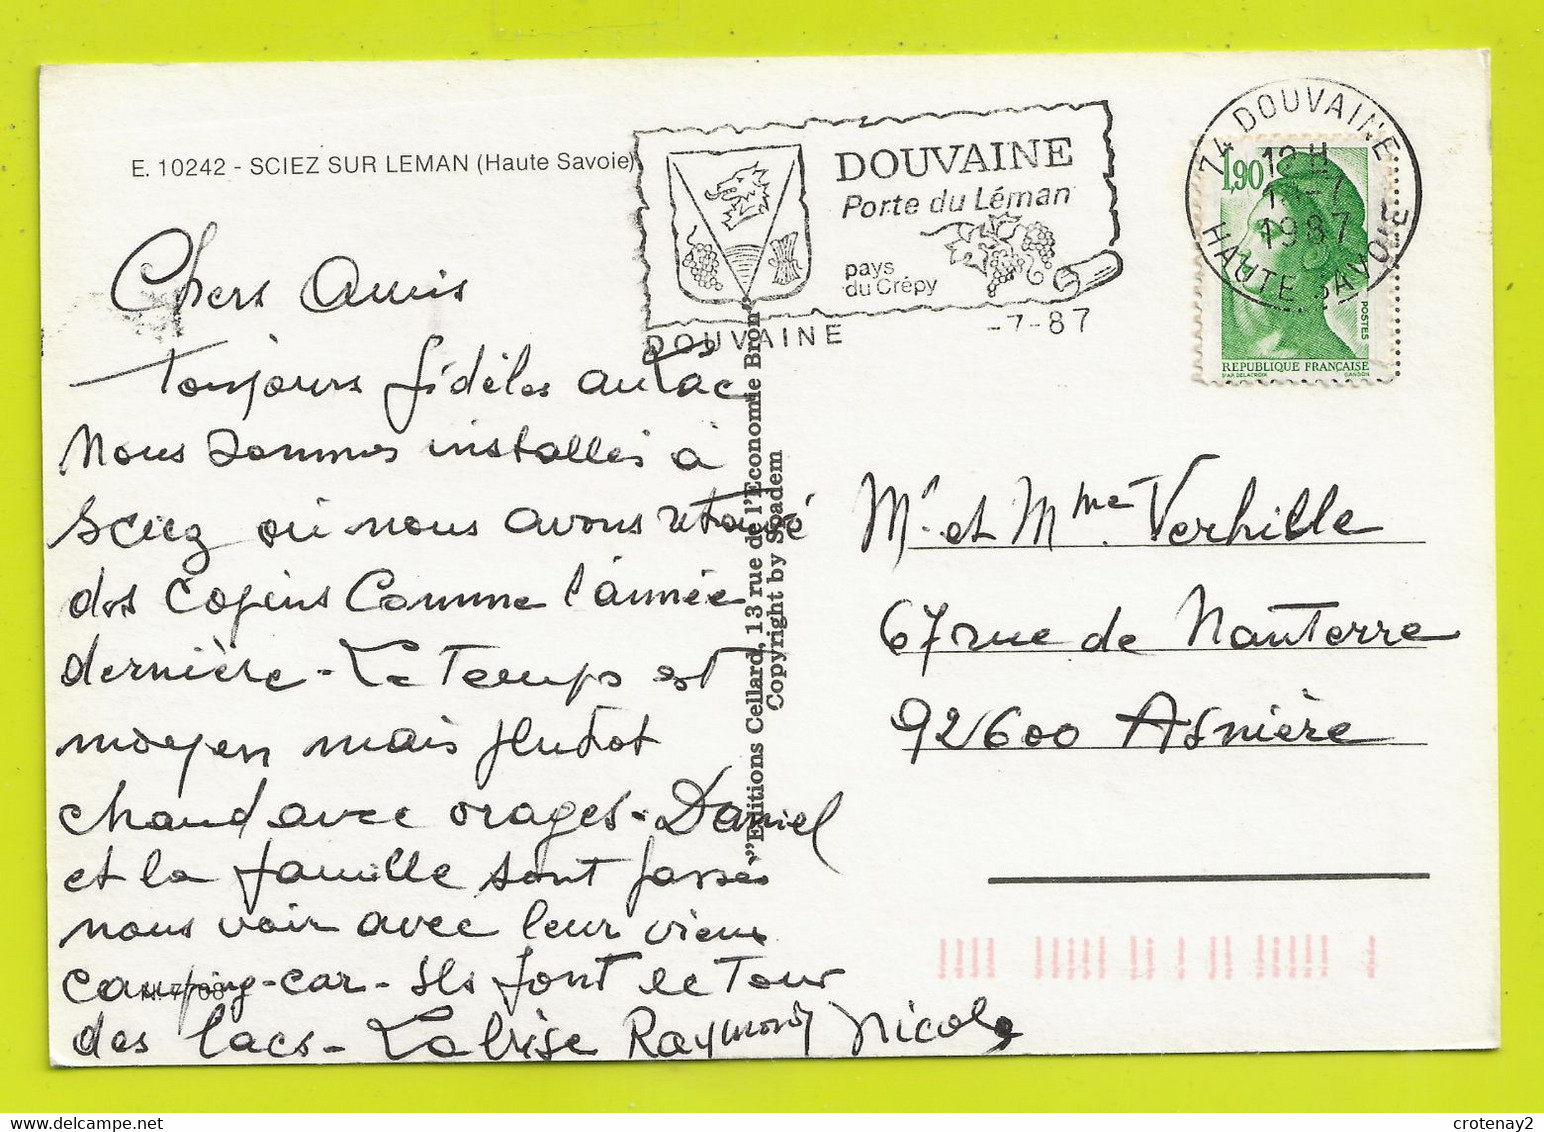 E. 10242 - SCIEZ SUR LEMAN (Haute Savoie)
DOUVAINE
Porte du Léman
pays
du Crépy
DOUVAINE
-7-87
74 DOUVAINE
12 H
1987
HAUTE SAVOIE
1,90
POSTES
REPUBLIQUE FRANÇAISE
D'AP. DELACROIX GANDON
Chers Amis
Toujours fidèles au Lac
Nous sommes installés à
Sciez où nous avons retrouvé
des copains comme l'année
dernière - Le Temps est
moyen mais plutôt
chaud avec orages - Daniel
et la famille sont passés
nous voir avec leur vieux
camping-car - Ils font le Tour
des lacs - La bise Raymond Nicole
"Editions Cellard, 13 rue de l'Economie Bron"
Copyright by Spadem
Mr et Mme Verhille
67 rue de Nanterre
92600 Asnière
crotenay2